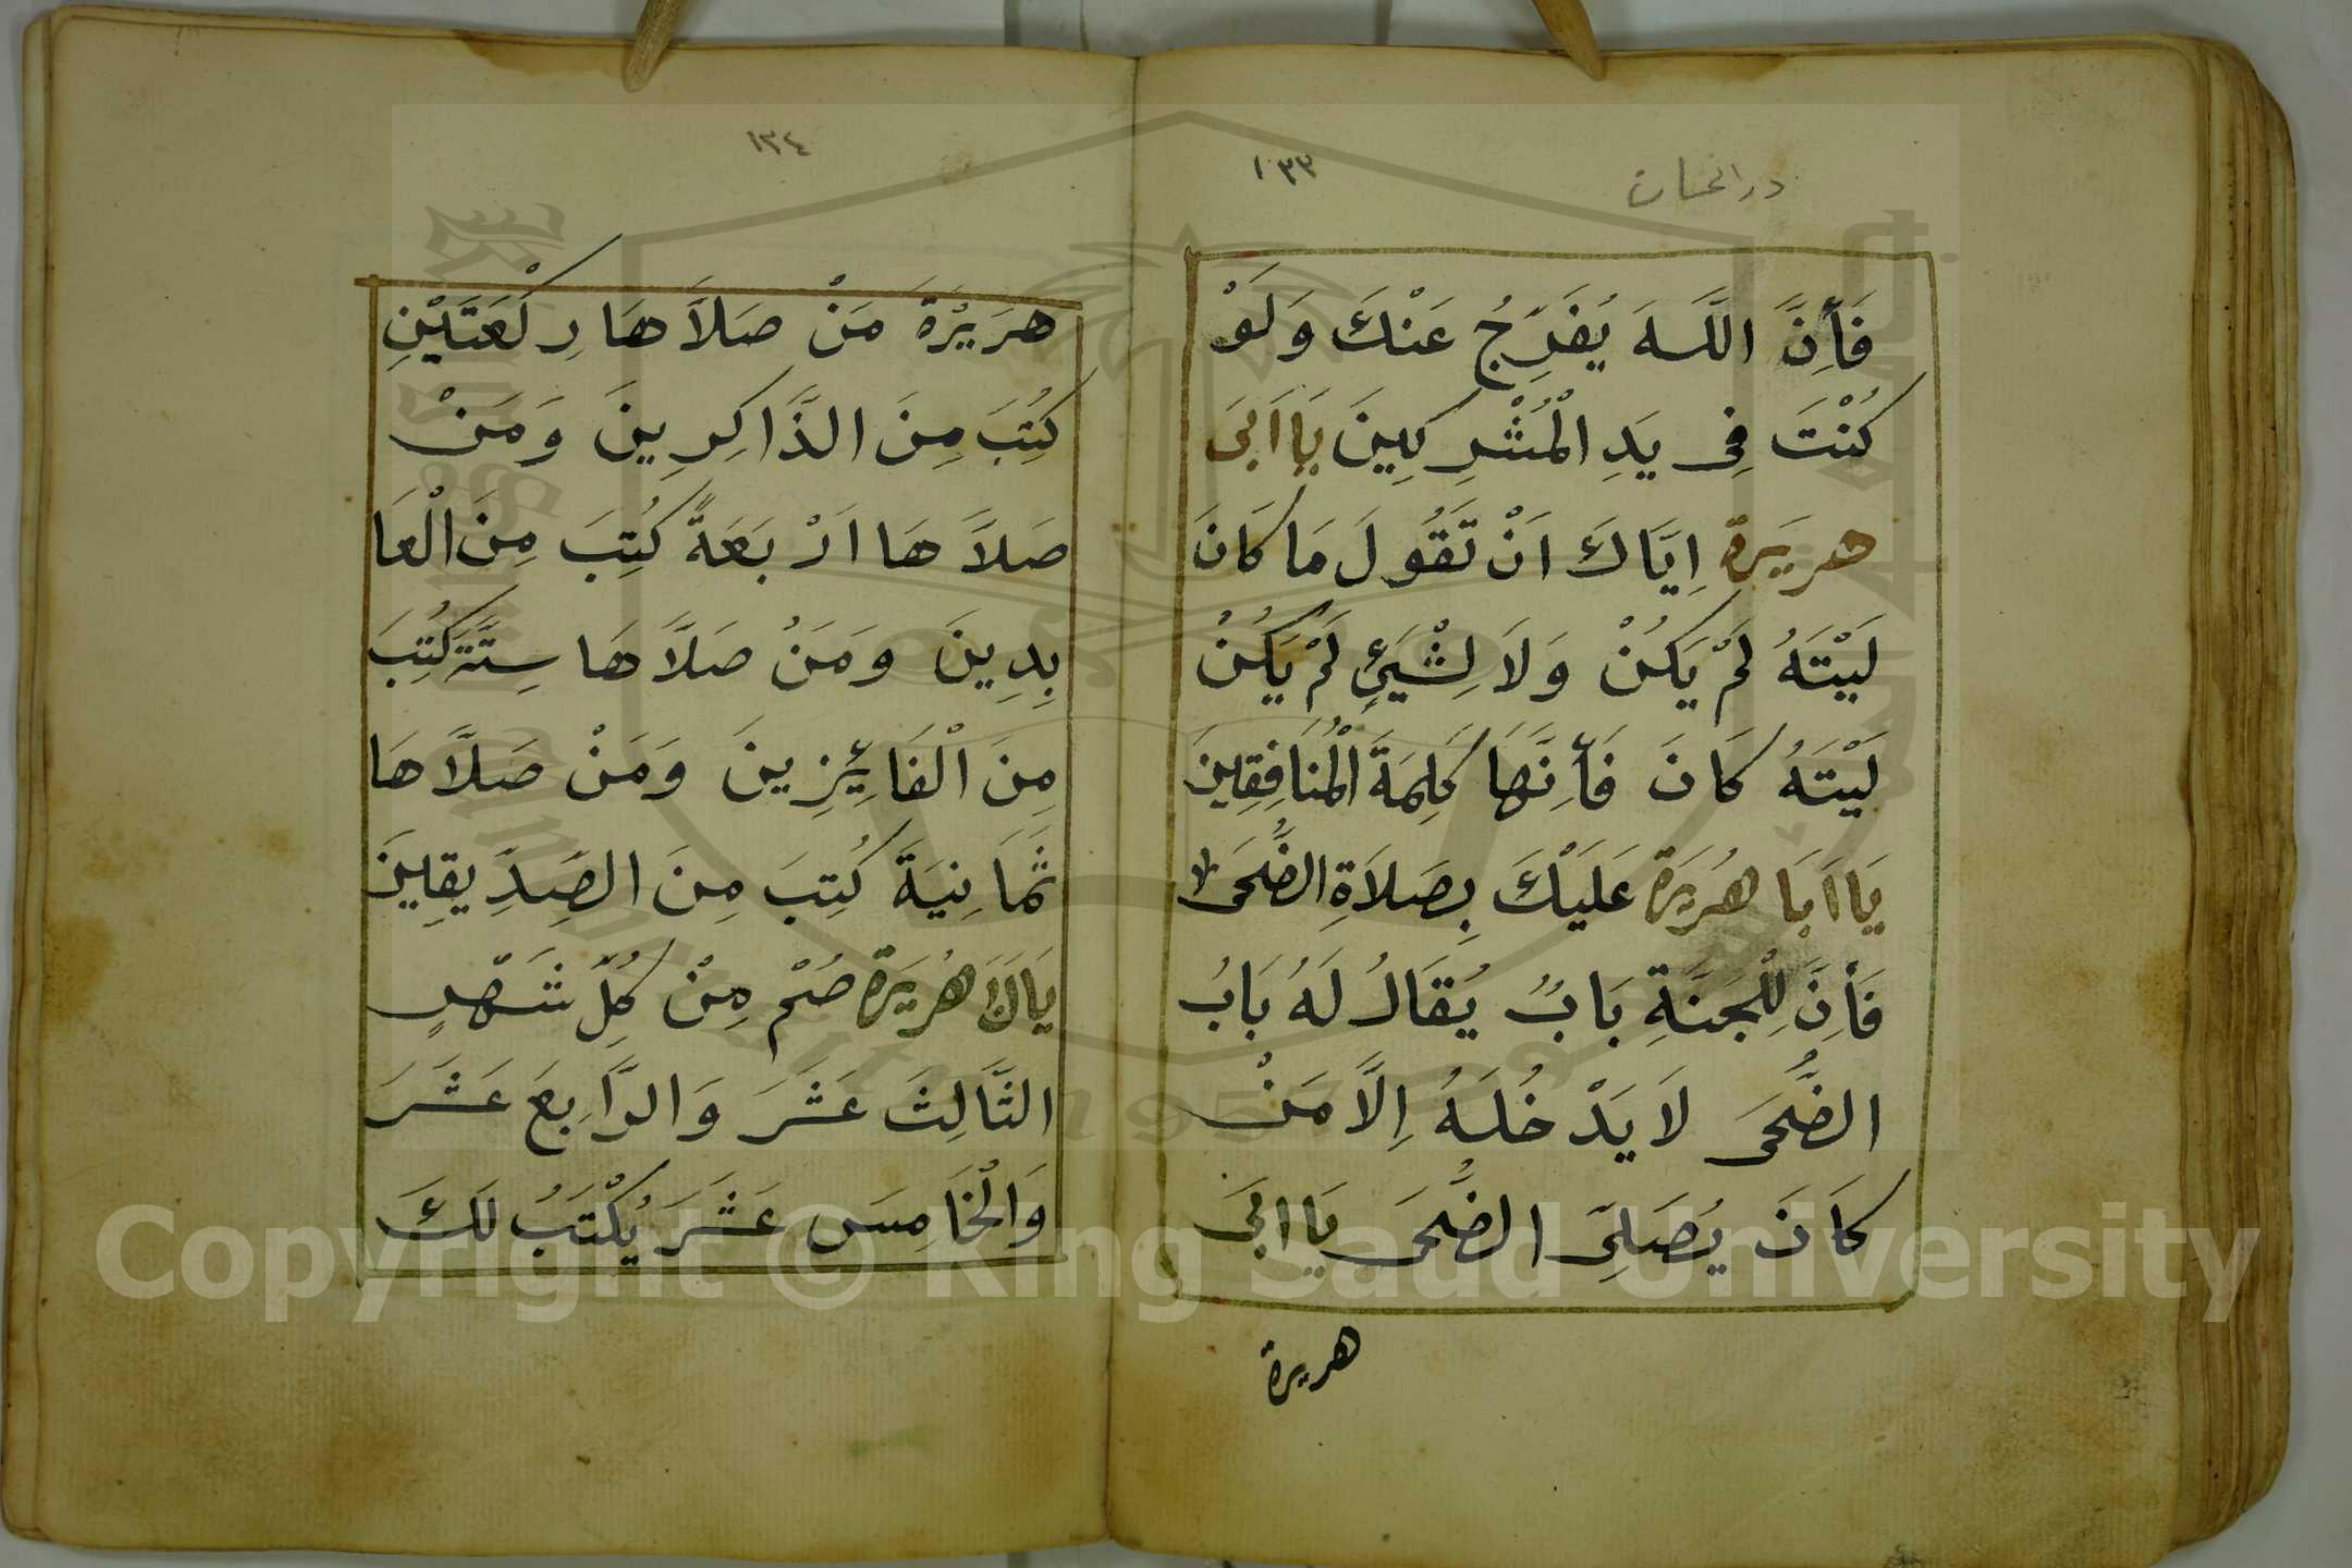 در الحسان
١٣٣
فَأِنَّ اللَّهَ يُفَرِّجُ عَنْكَ وَلَوْ
كُنْتَ فِى يَدِ الْمُشْرِكِينَ يَا اَبَى
هريَرة اِيَّاكَ اَنْ تَقُولَ مَا كَانَ
لَيْتَهُ لَمْ يَكُنْ وَلَا لِشْيَئٍ لَمْ يَكُنْ
لَيْتَهُ كَانَ فَأِنَّهَا كَلِمَةَ الْمُنَافِقِينَ
يَا اَبَا هُرَيَرة عَلَيْكَ بِصَلَاةِ الضُّحَى
فَأِنَّ لِلْجَنَّةِ بَابٌ يُقَالُ لَهُ بَابُ
الضُّحَى لَا يَدْخُلَهُ اِلَّا مَنْ
كَانَ يُصَلِىَّ الضُّحَى يَا ابَى
هريرة
١٣٤
هرَيْرَةَ مَنْ صَلاَّهَا رِكْعَتَيْنِ
كُتِبَ مِنَ الذَّاكِرِينَ وَمَنْ
صَلاَّهَا اَرْبَعَةً كُتِبَ مِنَ الْعَا
بِدِينَ وَمَنْ صَلَّاهَا سِتَّةَ كُتِبَ
مِنَ الْفَائِزِينَ وَمَنْ صَلَّاهَا
ثَمَانِيَةَ كُتِبَ مِنَ الصِّدِّيقِينَ
يَا اَبَا هُرَيَرة صُمْ مِنْ كُلِّ شَهْرٍ
الثَّالِثَ عَشَرَ وَالرَّابِعَ عَشَرَ
وَالْخَامِسَ عَشَرَ يُكْتَبُ لَكَ
Copyright © King Saud University